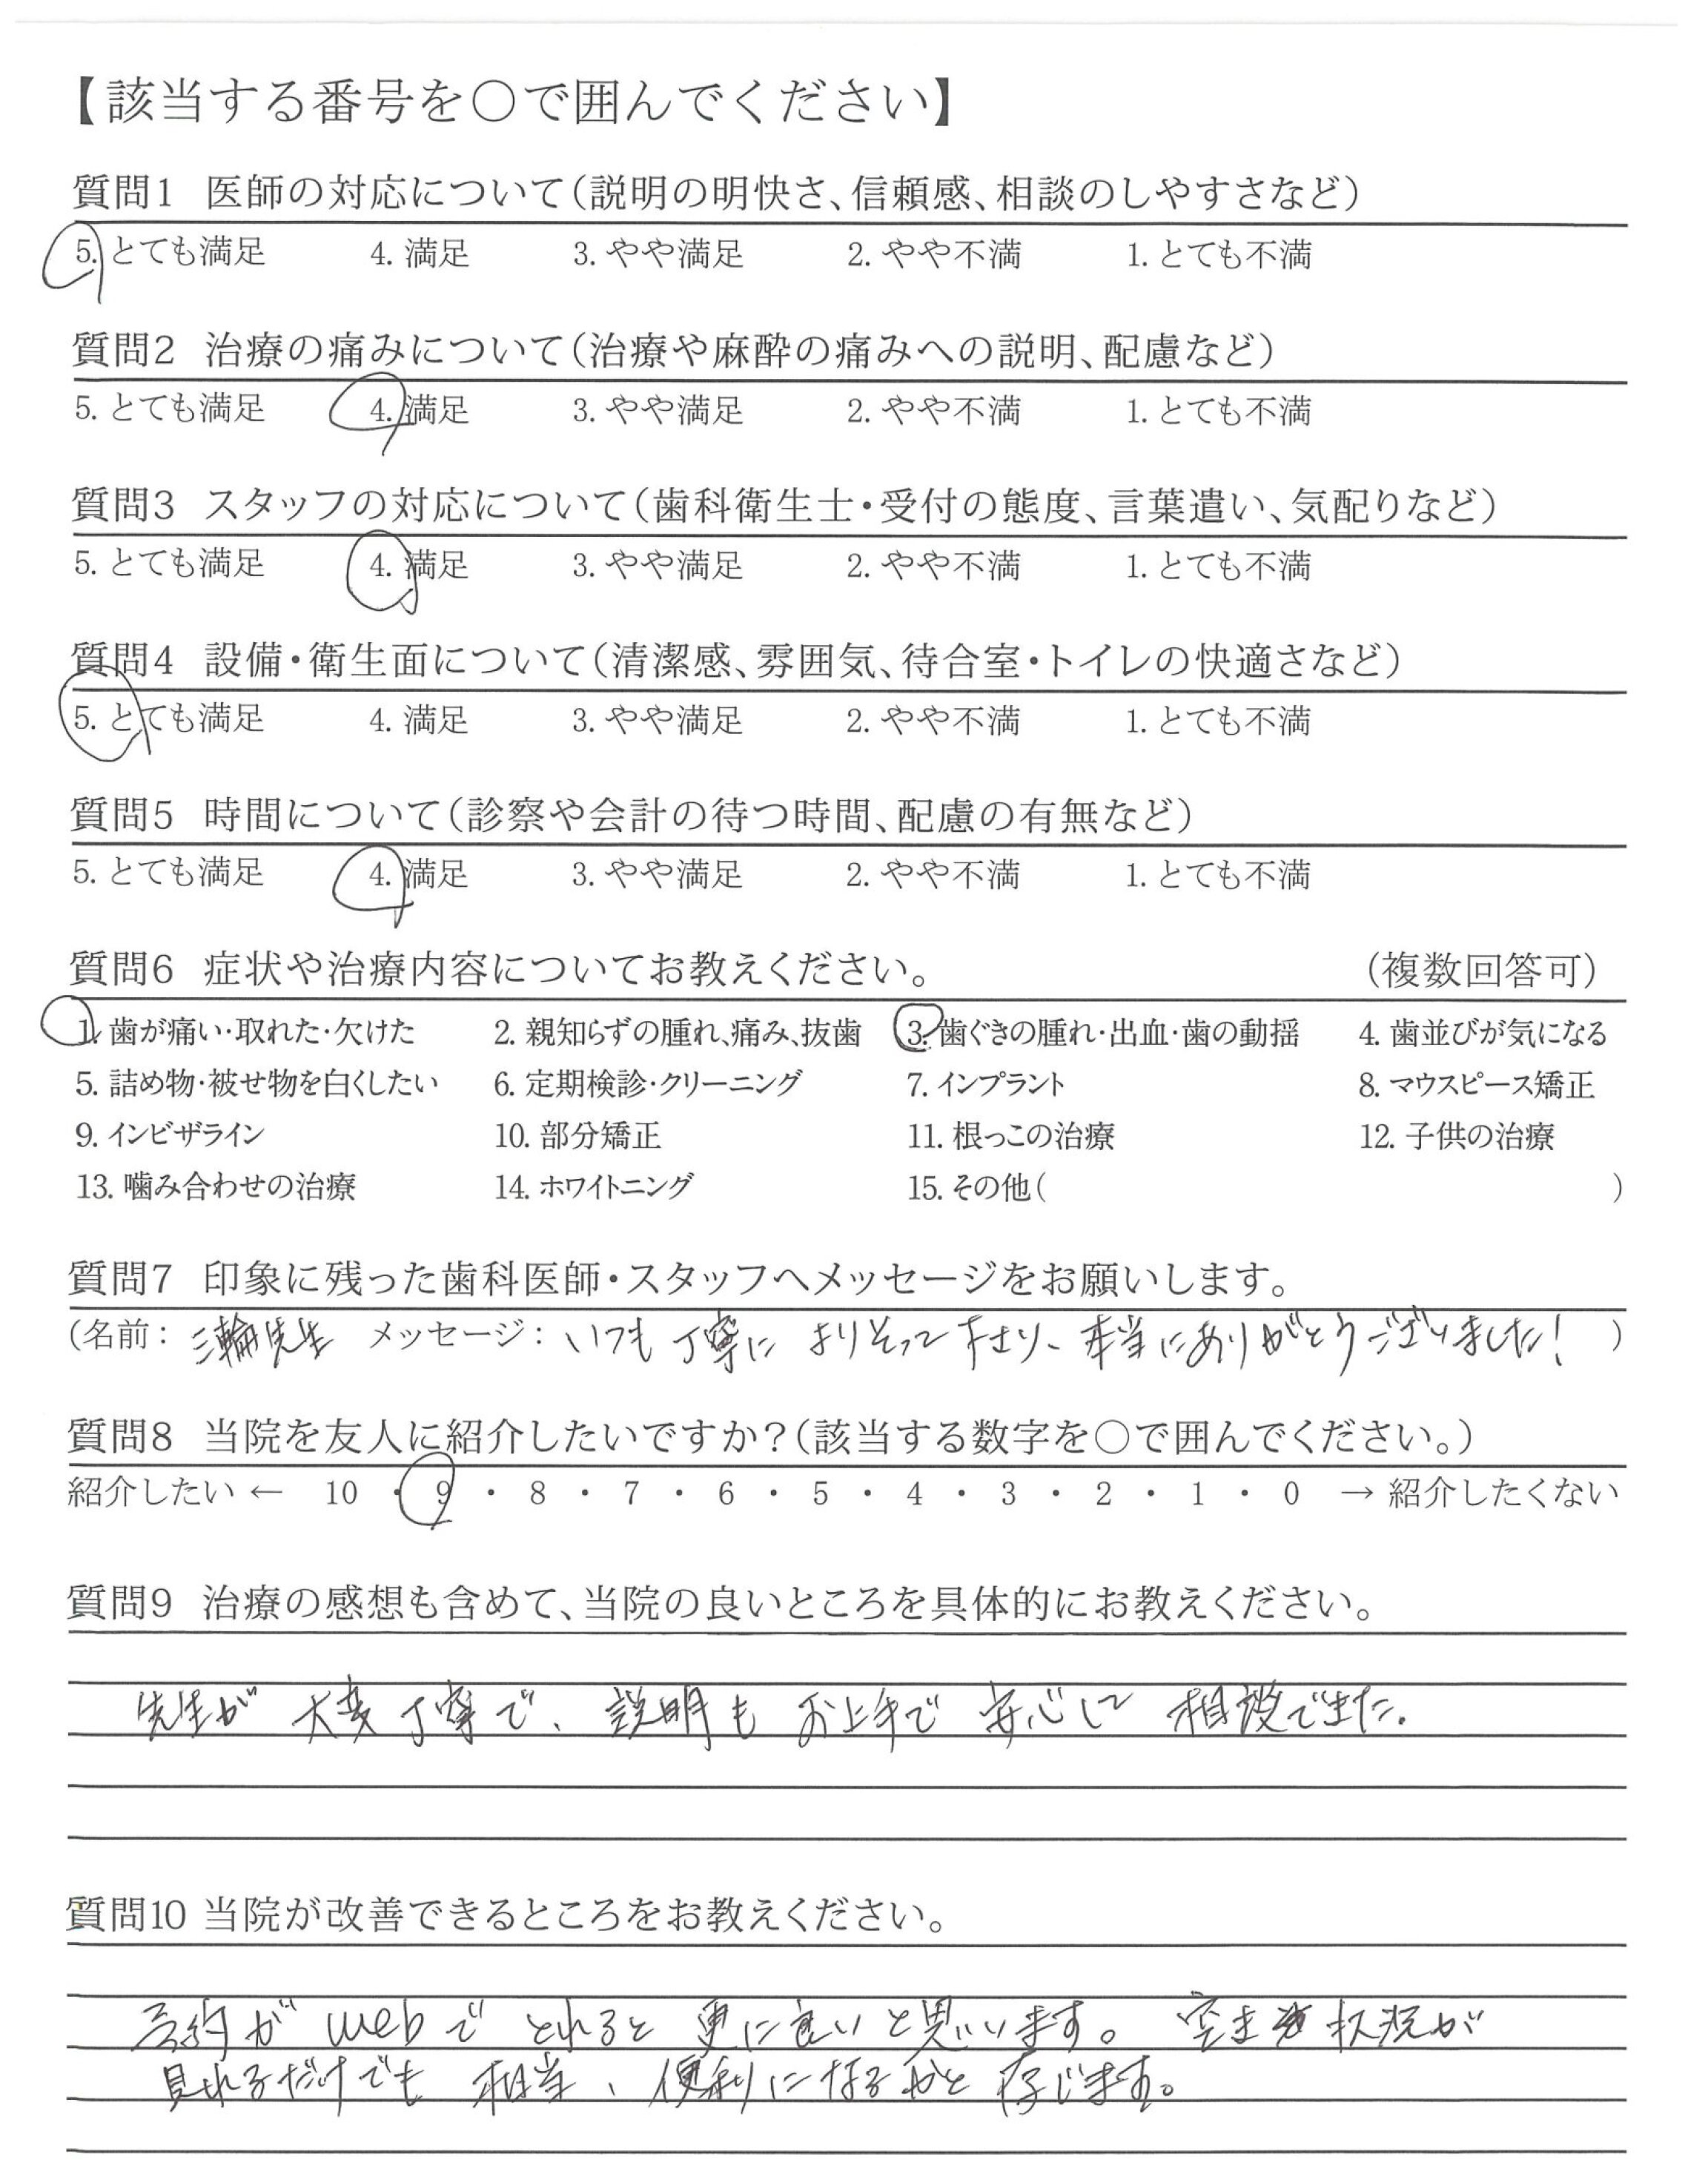 【該当する番号を○で囲んでください】
質問1 医師の対応について(説明の明快さ、信頼感、相談のしやすさなど)
5. とても満足 4. 満足 3. やや満足 2. やや不満 1. とても不満
質問2 治療の痛みについて(治療や麻酔の痛みへの説明、配慮など)
5. とても満足 4. 満足 3. やや満足 2. やや不満 1. とても不満
質問3 スタッフの対応について(歯科衛生士・受付の態度、言葉遣い、気配りなど)
5. とても満足 4. 満足 3. やや満足 2. やや不満 1. とても不満
質問4 設備・衛生面について(清潔感、雰囲気、待合室・トイレの快適さなど)
5. とても満足 4. 満足 3. やや満足 2. やや不満 1. とても不満
質問5 時間について(診察や会計の待つ時間、配慮の有無など)
5. とても満足 4. 満足 3. やや満足 2. やや不満 1. とても不満
質問6 症状や治療内容についてお教えください。 (複数回答可)
1. 歯が痛い・取れた・欠けた 2. 親知らずの腫れ、痛み、抜歯 3. 歯ぐきの腫れ・出血・歯の動揺 4. 歯並びが気になる
5. 詰め物・被せ物を白くしたい 6. 定期検診・クリーニング 7. インプラント 8. マウスピース矯正
9. インビザライン 10. 部分矯正 11. 根っこの治療 12. 子供の治療
13. 噛み合わせの治療 14. ホワイトニング 15. その他( )
質問7 印象に残った歯科医師・スタッフへメッセージをお願いします。
(名前: 三輪先生 メッセージ: いつも丁寧によりそって下さり、本当にありがとうございました! )
質問8 当院を友人に紹介したいですか?(該当する数字を○で囲んでください。)
紹介したい ← 10 ・ 9 ・ 8 ・ 7 ・ 6 ・ 5 ・ 4 ・ 3 ・ 2 ・ 1 ・ 0 → 紹介したくない
質問9 治療の感想も含めて、当院の良いところを具体的にお教えください。
先生が大変丁寧で、説明もお上手で安心して相談できた.
質問10 当院が改善できるところをお教えください。
予約がwebでとれると更に良いと思います。空き状況が
見れるだけでも相当、便利になるかと存じます。